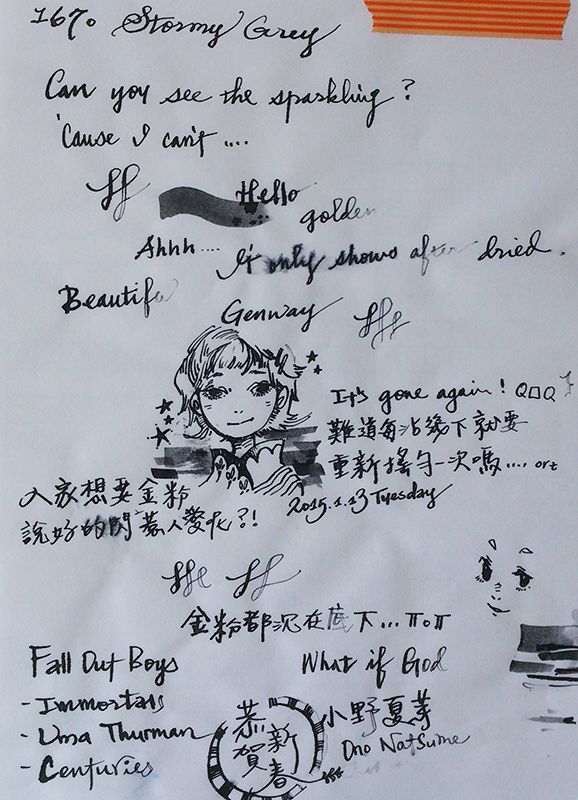 1670 Stormy Grey
Can you see the sparkling?
'Cause I can't....
Hello
golden
Ahhh....
It only shows after dried.
Beautiful
Genway
It's gone again! Q□Q
難道每沾幾下就要
重新搖勻一次嗎.... orz
2015.1.13 Tuesday
人家想要金粉
說好的閃惹人愛呢?!
金粉都沉在底下...π.π
Fall Out Boys
- Immortals
- Uma Thurman
- Centuries
What if God
恭賀新春
小野夏芽
Ono Natsume